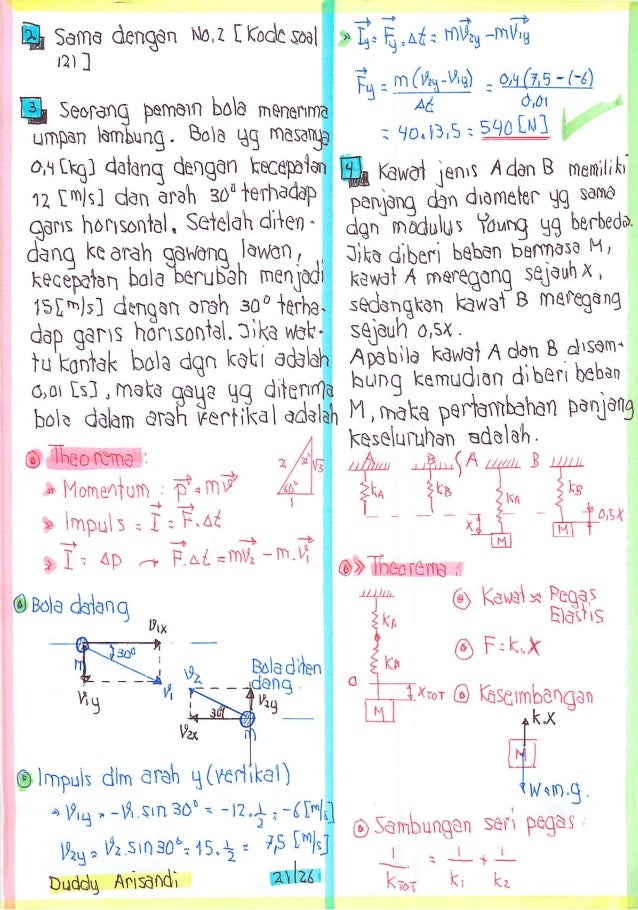 2. Sama dengan No.2 [Kode soal
121]
3. Seorang pemain bola menerima
umpan lambung. Bola yg masanya
0,4 [kg] datang dengan kecepatan
12 [m/s] dan arah 30° terhadap
garis horisontal. Setelah diten-
dang ke arah gawang lawan,
kecepatan bola berubah menjadi
15 [m/s] dengan arah 30° terha-
dap garis horisontal. Jika wak-
tu kontak bola dgn kaki adalah
0,01 [s], maka gaya yg diterima
bola dalam arah vertikal adalah
Theorema:
Momentum : p = mv
Impuls = I = F.Δt
I = Δp → F.Δt = mv₂ - m.v₁
2 30° √3
60°
1
Bola datang
V₁x
30°
m
V₁y V₁
V₂ Bola diten
dang
V₂y
30°
V₂x m
Impuls dlm arah y (vertikal)
V₁y = -V₁.sin 30° = -12.1/2 = -6 [m/s]
V₂y = V₂.sin 30° = 15.1/2 = 7,5 [m/s]
Duddy Arisandi 21/26
Iy = Fy.Δt = mV₂y - mV₁y
Fy = m(V₂y-V₁y)/Δt = 0,4(7,5-(-6)/0,01
= 40.13,5 = 540 [N]
4. Kawat jenis A dan B memiliki
panjang dan diameter yg sama
dgn modulus Young yg berbeda.
Jika diberi beban bermasa M,
kawat A meregang sejauh x,
sedangkan kawat B meregang
sejauh 0,5x.
Apabila kawat A dan B disam-
bung kemudian diberi beban
M, maka pertambahan panjang
keseluruhan adalah.
A B A B
kA kB kA kB
x 0,5x
M M
Theorema :
kA
kB
0
xTOT
M
Kawat ≈ Pegas
Elastis
F = k.x
Keseimbangan
k.x
M
W = m.g.
Sambungan seri pegas:
1/kTOT = 1/k₁ + 1/k₂